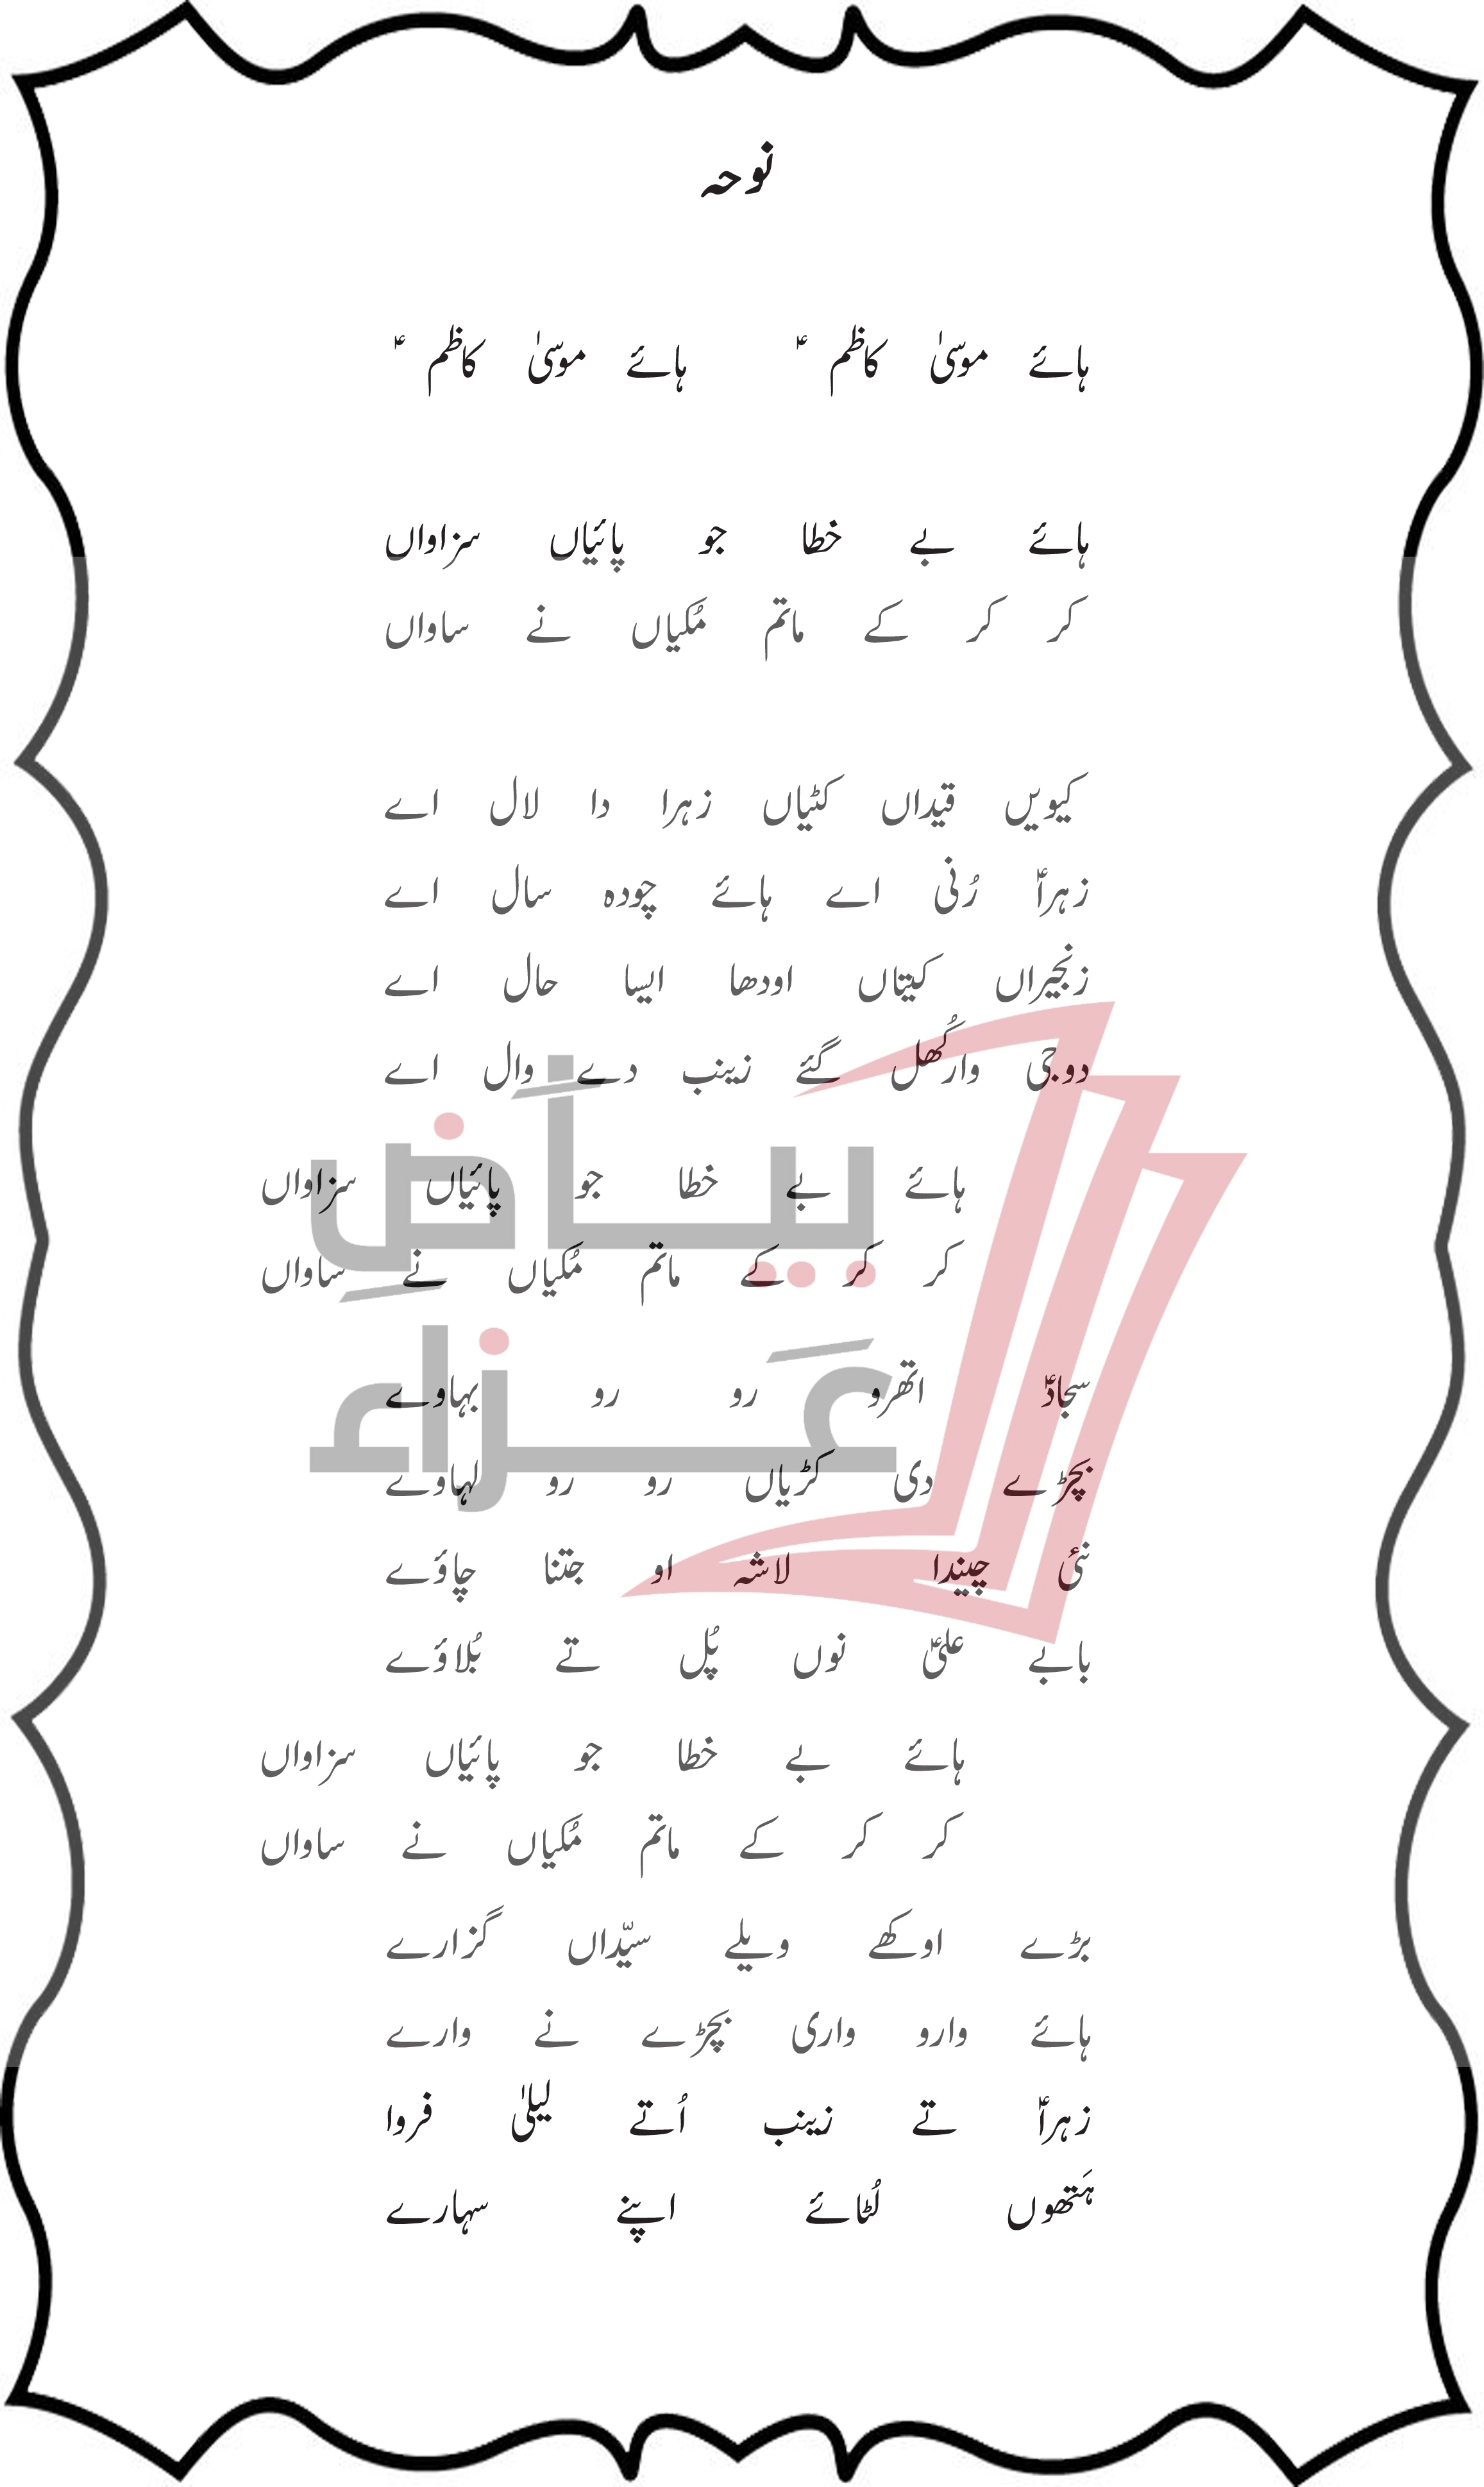 نوحہ
ہائے موسیٰ کاظم ؑ ہائے موسیٰ کاظم ؑ
ہائے بے خطا جو پائیاں سزاواں
کر کر کے ماتم مُکیاں نے ساواں
کیویں قیداں کٹیاں زہرا دا لال اے
زہراؑ رُنی اے ہائے چودہ سال اے
زنجیراں کیتاں اودھا ایسا حال اے
دوجی وارکُھل گئے زینب دے وال اے
ہائے بے خطا جو پائیاں سزاواں
کر کر کے ماتم مُکیاں نے ساواں
سجادؑ اتھرو رو رو بہاوے
بچڑے دی کڑیاں رو رو لہاوے
نئی چیندا لاشہ او جتنا چاؤے
بابے علیؑ نوں پُل تے بُلاؤے
ہائے بے خطا جو پائیاں سزاواں
کر کر کے ماتم مُکیاں نے ساواں
بڑے اوکھے ویلے سیّداں گزارے
ہائے وارو واری بچڑے نے وارے
زہراؑ تے زینب اُتے لیلیٰ فروا
ہَتھوں لُٹائے اپنے سہارے
بیاضِ
عَزاء